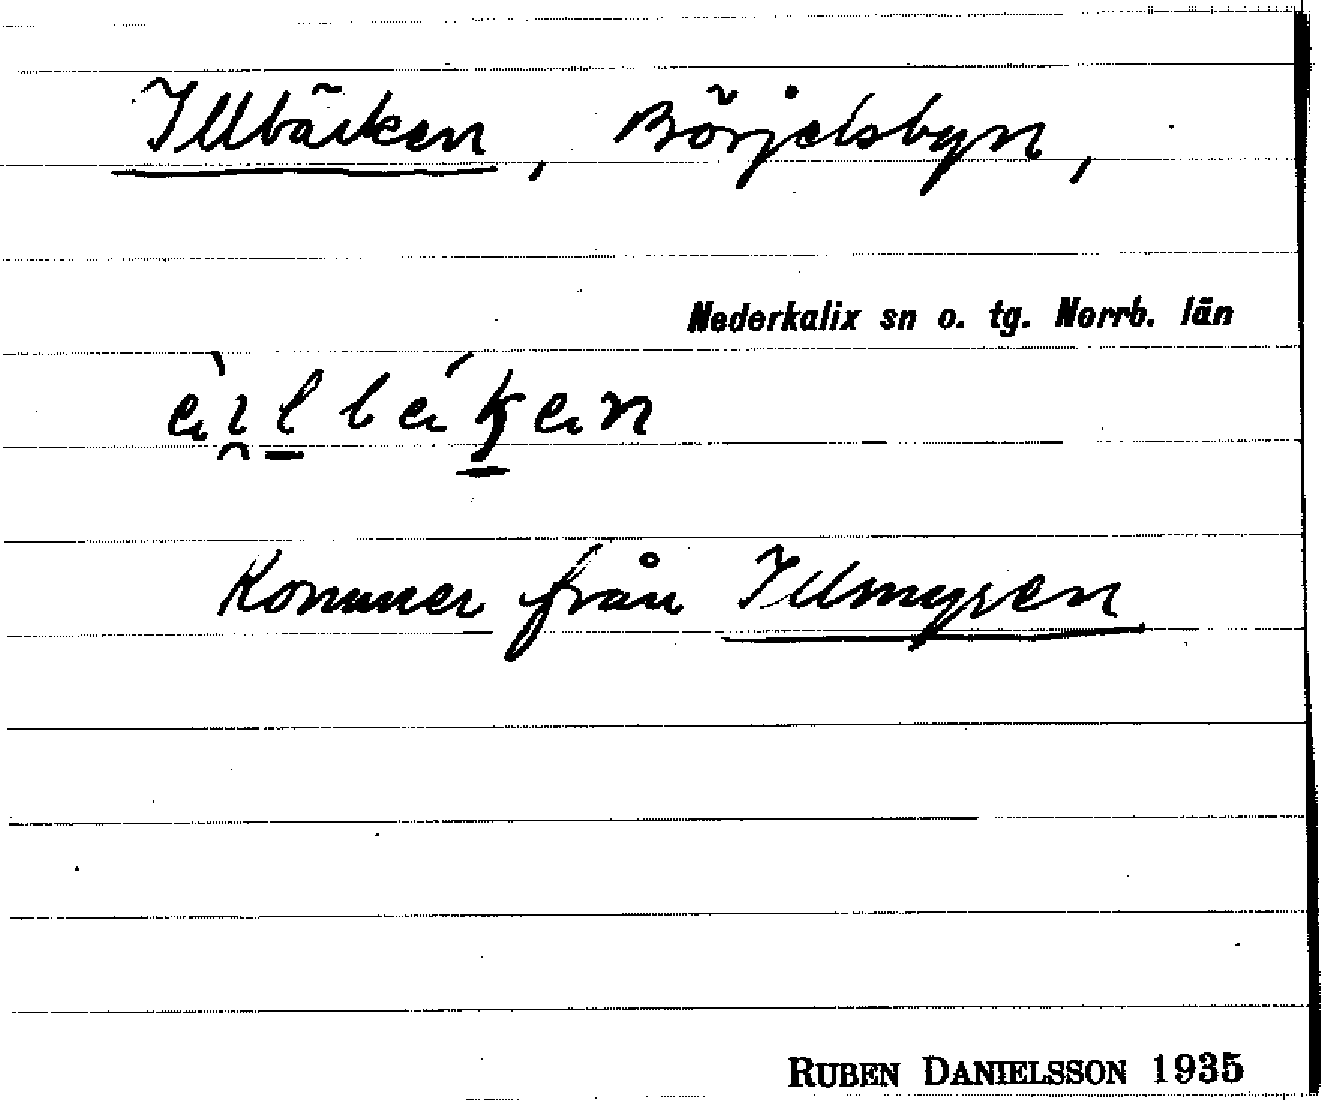 Illbäcken, Börjelsbyn,
Nederkalix sn o. tg. Norrb. län
Kommer från Illmyren
RUBEN DANIELSSON 1935